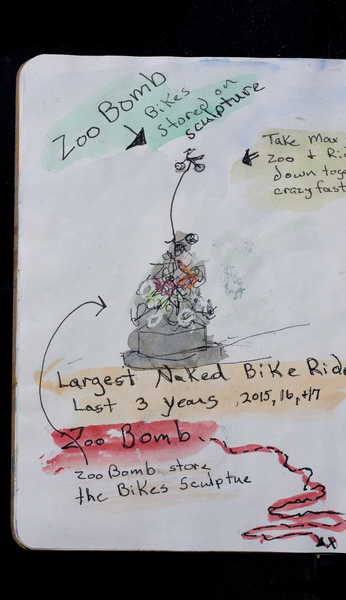 Zoo Bomb
Bikes
stored on
sculpture
Take Max
Zoo & Rid
down toge
crazy fast
Largest Naked Bike Ride
Last 3 years ,2015, 16, +17
Zoo Bomb.
Zoo Bomb store
the Bikes Sculptue